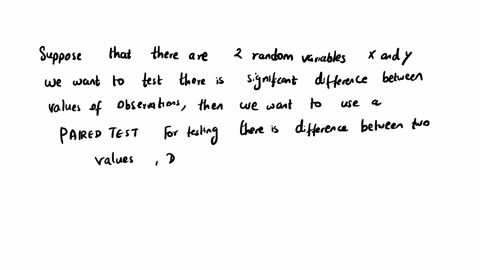 Suppose that there are 2 random variables x and y
we want to test there is significant difference between
values of observations, then we want to use a
PAIRED TEST for testing there is difference between two
values , D